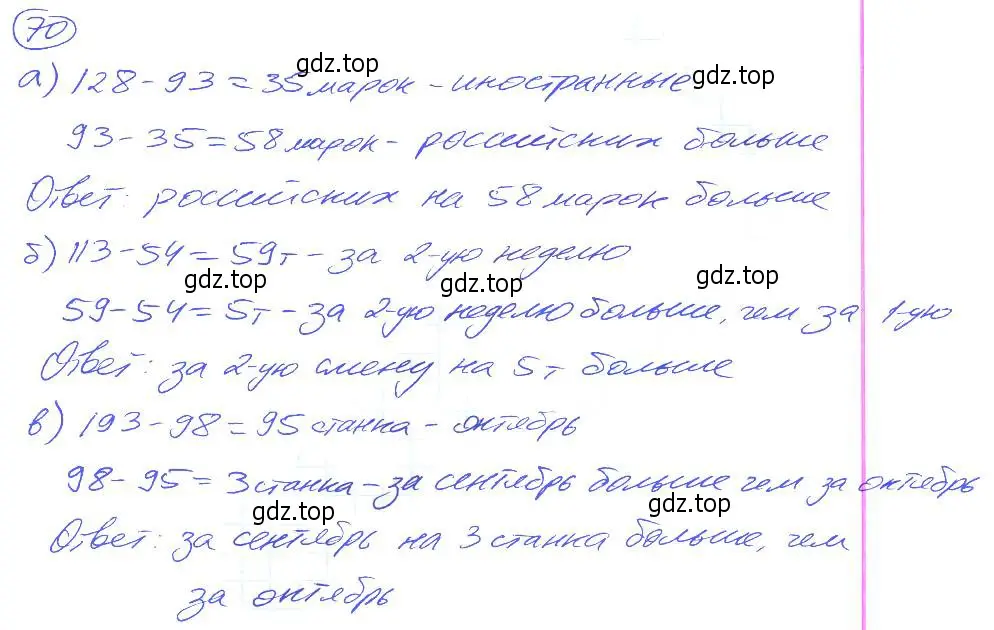 70
gdz.top
а) 128 - 93 = 35 марок - иностранные
gdz.top
93 - 35 = 58 марок - российских больше
Ответ: российских на 58 марок больше
б) 113 - 54 = 59т - за 2-ую неделю
gdz.top gdz.top gdz.top
59 - 54 = 5т - за 2-ую неделю больше, чем за 1-ую
Ответ: за 2-ую смену на 5т больше
в) 193 - 98 = 95 станка - октябрь
98 - 95 = 3 станка - за сентябрь больше чем за октябрь
gdz.top gdz.top
Ответ: за сентябрь на 3 станка больше, чем
за октябрь